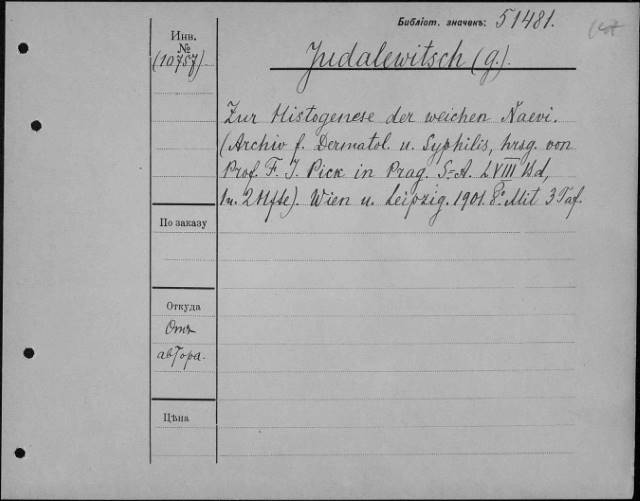 Библіот. значекъ: 51481.
Инв.
№
(10787)
Judalewitsch (G.).
Zur Histogenese der weichen Naevi.
(Archiv f. Dermatol. u. Syphilis, hrsg. von
Prof. F. J. Pick in Prag. S=A. LVIII Bd,
1 u. 2 Hfte). Wien u. Leipzig. 1901. 8º. Mit 3 Taf.
По заказу
Откуда
Отъ
автора.
Цѣна